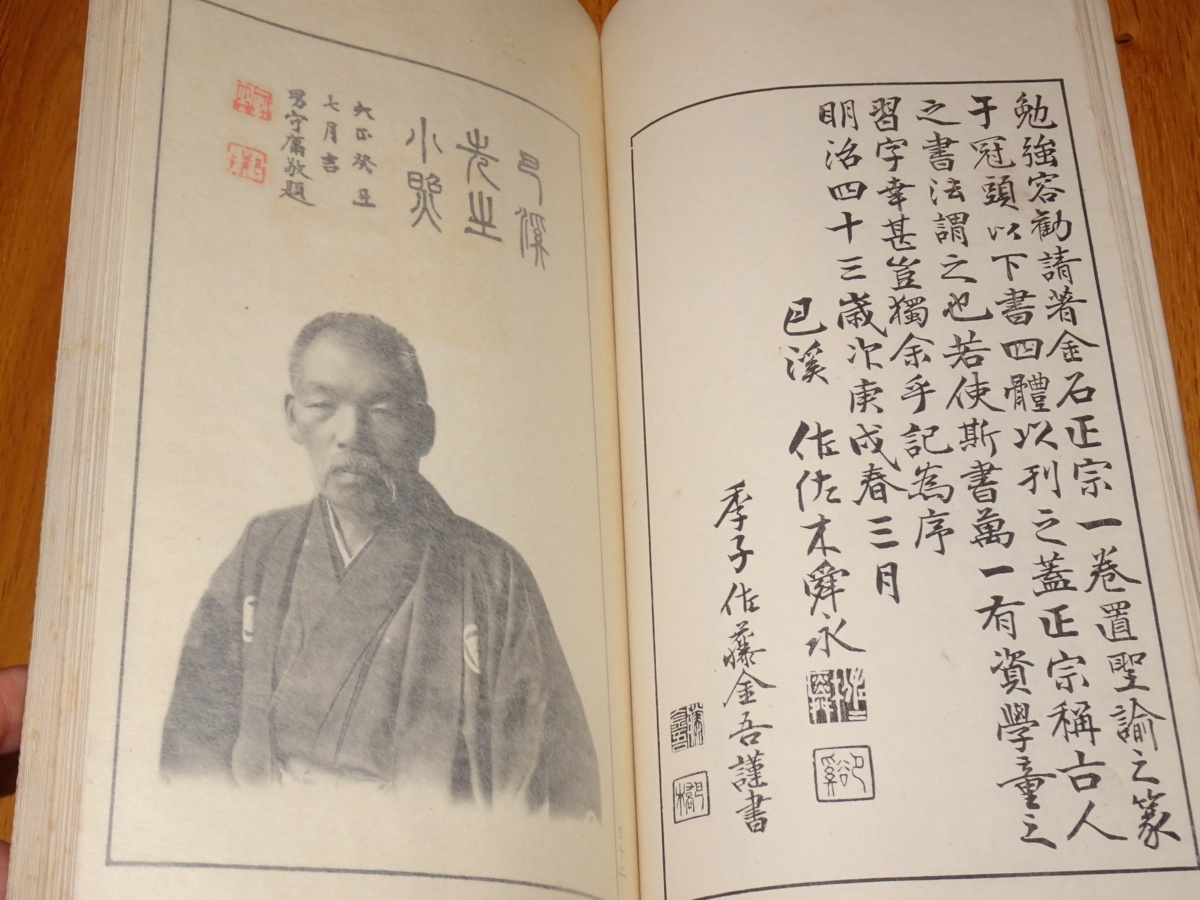 勉強容勸請著金石正宗一卷置聖諭之篆
于冠頭以下書四體以刊之蓋正宗稱古人
之書法謂之也若使斯書萬一有資學童之
習字幸甚豈獨余乎記為序
明治四十三歲次庚戌春三月
巳溪 佐佐木舜永
季子佐藤金吾謹書
巳溪
先生
小照
大正癸丑
七月吉
男守庸敬題